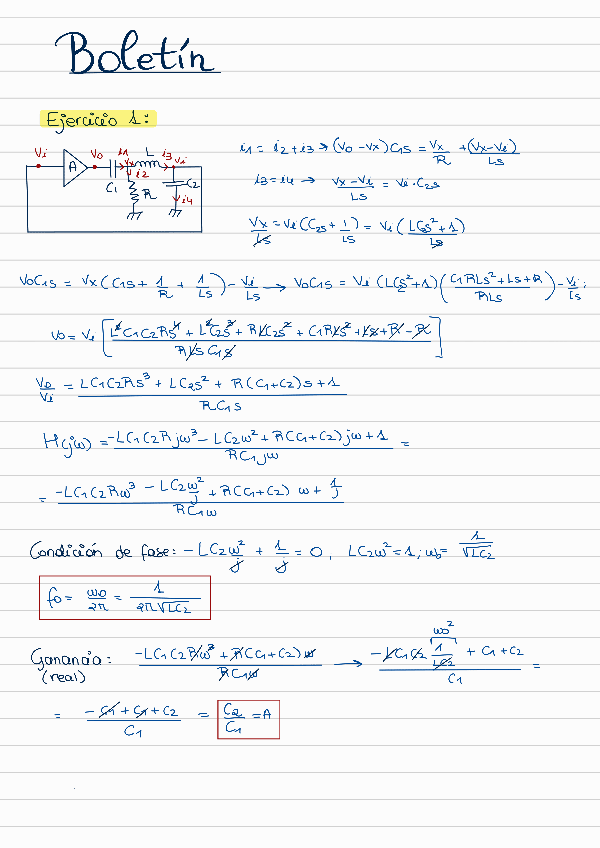 Boletín
Ejercicio 1:
Vi A Vo i1 Vx L i3 Vi
C1 i2 R C2 i4
i1 = i2 + i3 → (Vo - Vx)C1s = Vx/R + (Vx - Vi)/Ls
i3 = i4 → (Vx - Vi)/Ls = Vi · C2s
Vx/Ls = Vi (C2s + 1/Ls) = Vi (LC2s² + 1)/Ls
VoC1s = Vx (C1s + 1/R + 1/Ls) - Vi/Ls → VoC1s = Vi (LC2s² + 1) ((C1RLs² + Ls + R)/RLs) - Vi/Ls ;
Vo = Vi [(L²C1C2Rs⁴ + L²C2s³ + RLC2s² + C1RLs² + Ls + R - R)/(RLs C1s)]
Vo/Vi = (LC1C2Rs³ + LC2s² + R(C1+C2)s + 1)/(RC1s)
H(jω) = (-LC1C2Rjω³ - LC2ω² + R(C1+C2)jω + 1)/(RC1jω) =
= (-LC1C2Rω³ - LC2ω²/j + R(C1+C2) ω + 1/j)/(RC1ω)
Condición de fase: - LC2ω²/j + 1/j = 0, LC2ω² = 1; ωo = 1/√LC2
fo = ωo/2π = 1/(2π√LC2)
ωo²
Ganancia: (-LC1C2Rω³ + R(C1+C2)ω)/(RC1ω) → (-LC1C2 1/LC2 + C1 + C2)/C1 =
(real)
= (-C1 + C1 + C2)/C1 = C2/C1 = A